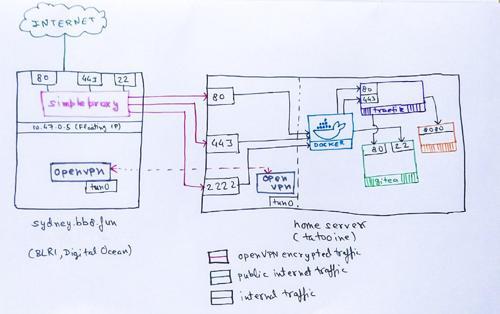 INTERNET
80
443
22
simpleproxy
10.47.0.5 (Floating IP)
openvpn
tun0
sydney.bb8.fun
(BLR1, Digital Ocean)
80
443
2222
open
vpn
tun0
DOCKER
80
443
traefik
80
22
gitea
8080
home server
(tatooine)
openVPN encrypted traffic
public internet traffic
internal traffic